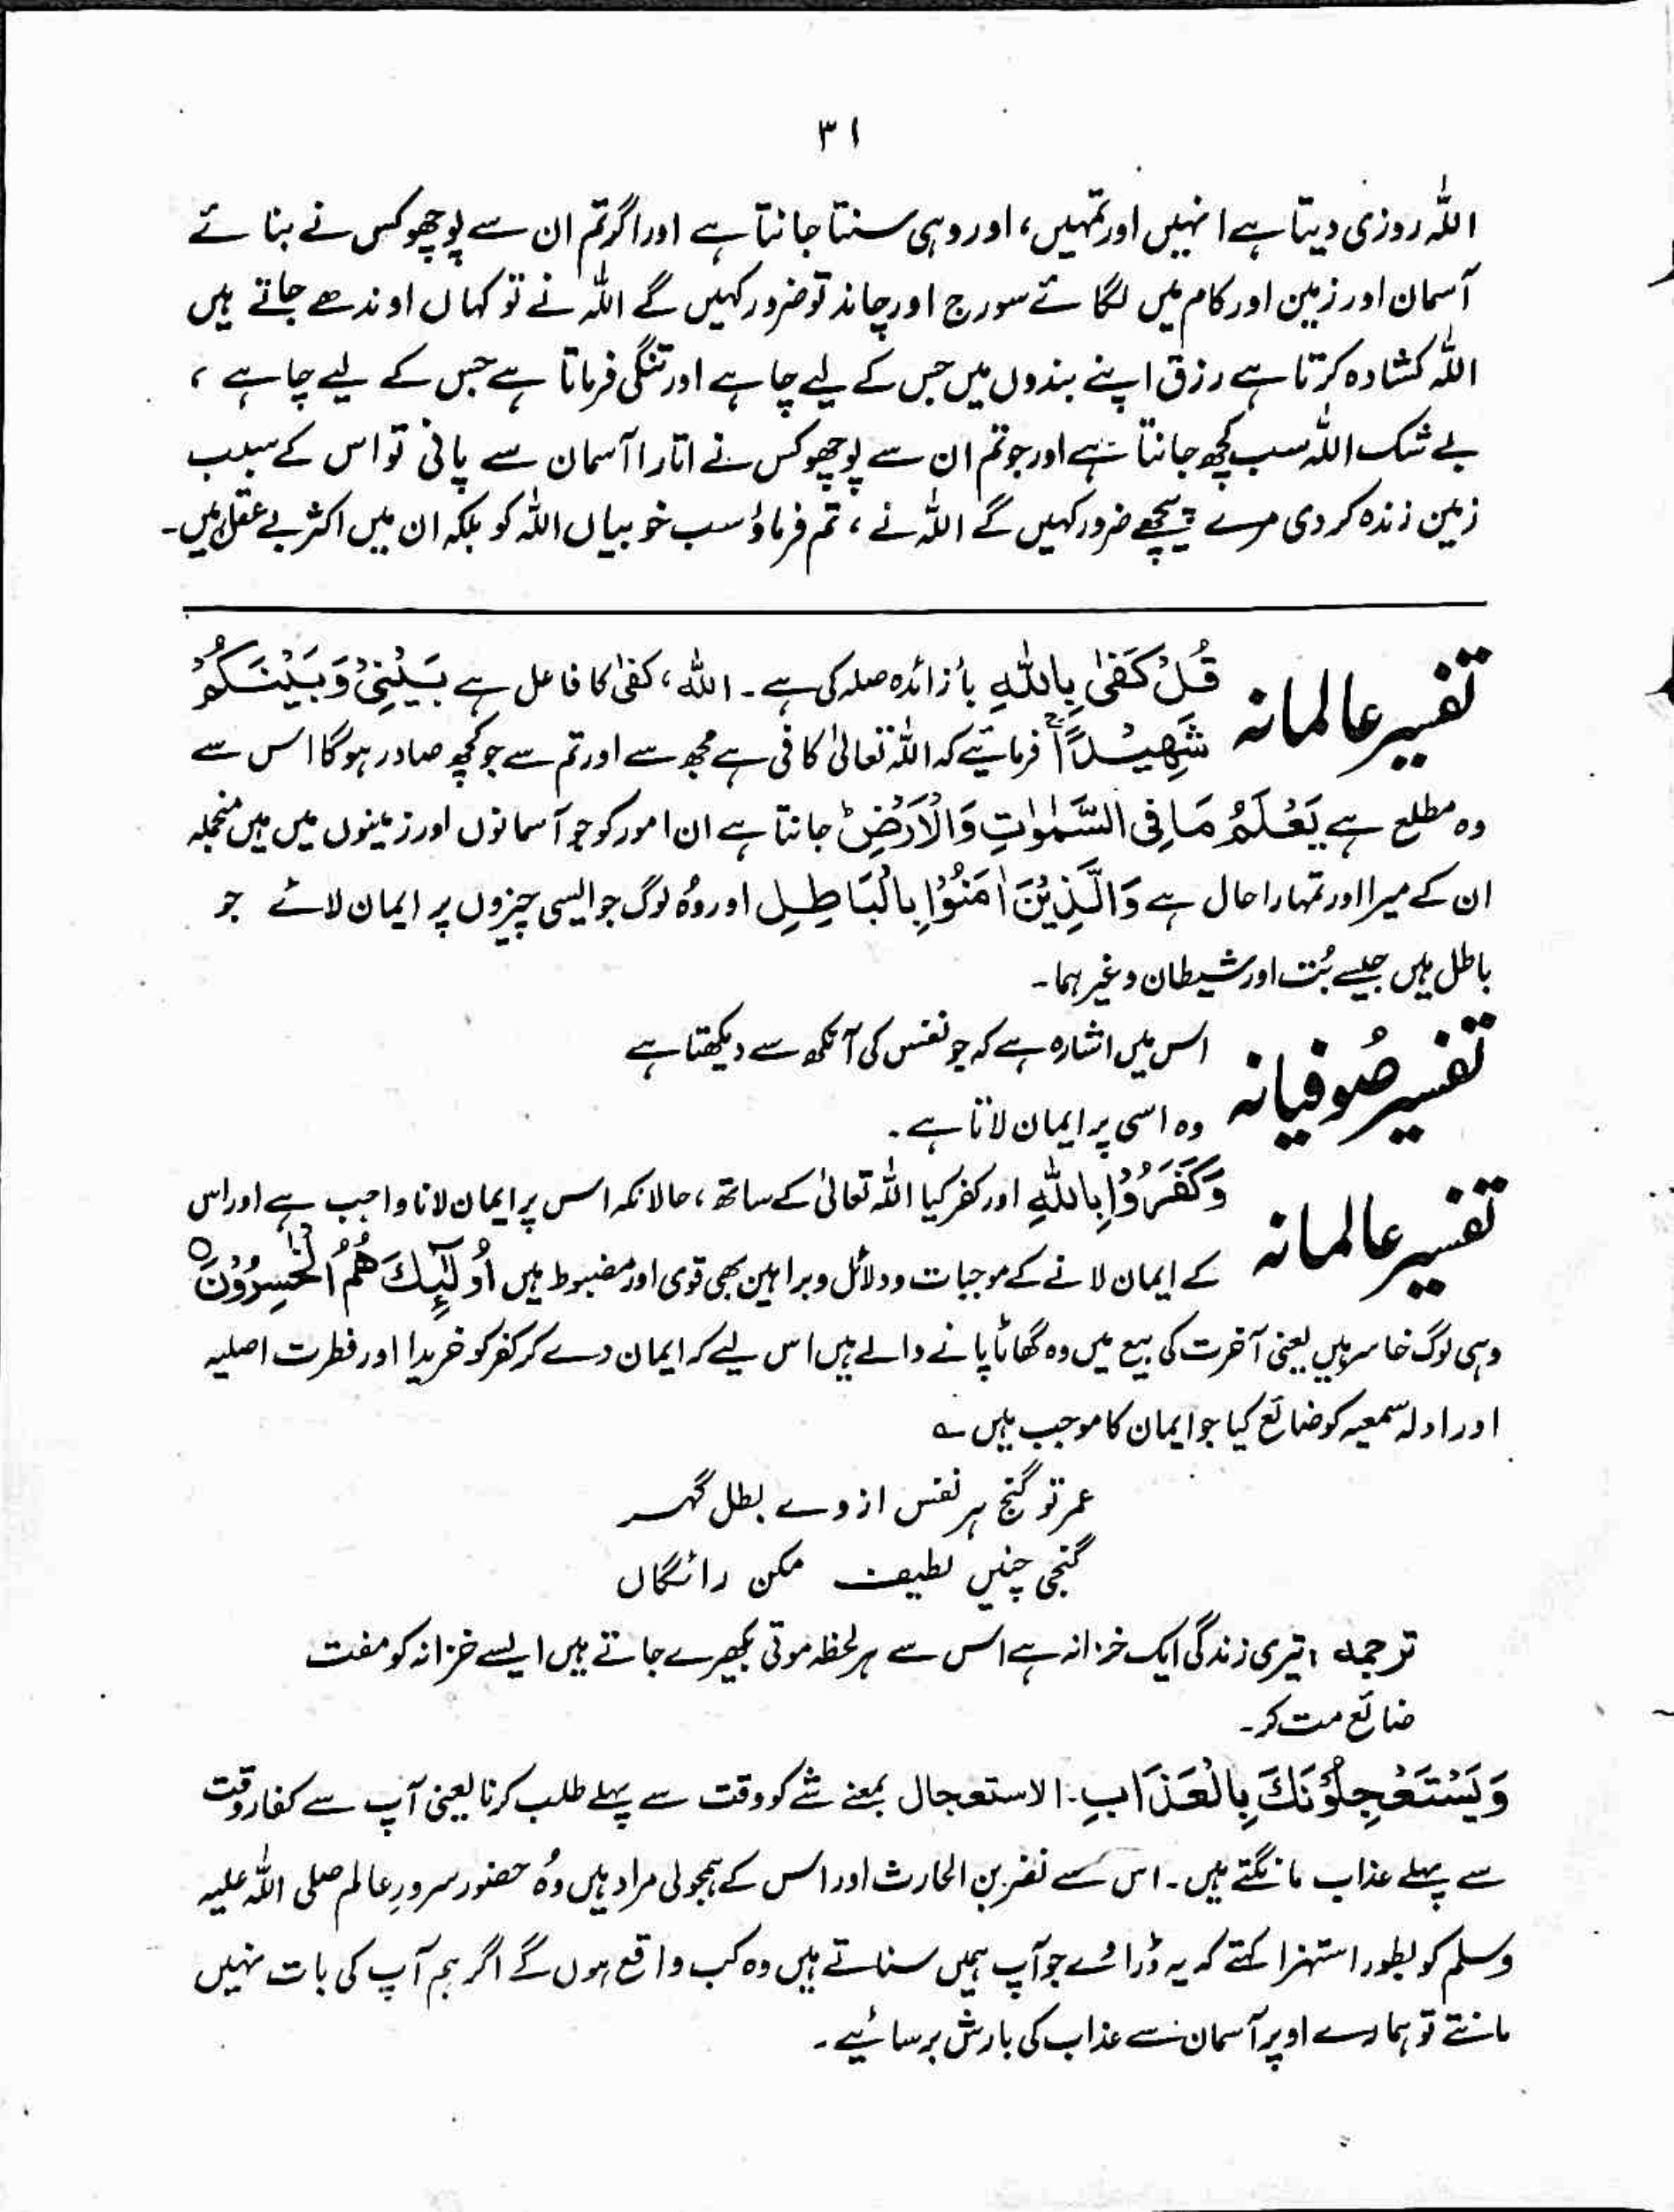 ۳۱
اللہ روزی دیتا ہے انہیں اور تمہیں، اور وہی سنتا جانتا ہے اور اگر تم ان سے پوچھو کس نے بنائے
آسمان اور زمین اور کام میں لگائے سورج اور چاند تو ضرور کہیں گے اللہ نے تو کہاں اوندھے جاتے ہیں
اللہ کشادہ کرتا ہے رزق اپنے بندوں میں جس کے لیے چاہے اور تنگی فرماتا ہے جس کے لیے چاہے،
بے شک اللہ سب کچھ جانتا ہے اور جو تم ان سے پوچھو کس نے اتارا آسمان سے پانی تو اس کے سبب
زمین زندہ کر دی مرے پیچھے ضرور کہیں گے اللہ نے، تم فرماؤ سب خوبیاں اللہ کو بلکہ ان میں اکثر بے عقل ہیں۔
تفسیر عالمانہ قُلْ كَفٰى بِاللّٰهِ بأ زائدہ صلہ کی ہے۔ اللہ، کفیٰ کا فاعل ہے بَيْنِيْ وَبَيْنَكُمْ
شَهِيْدًا ۚ فرمائیے کہ اللہ تعالیٰ کافی ہے مجھ سے اور تم سے جو کچھ صادر ہوگا اس سے
وہ مطلع ہے يَعْلَمُ مَا فِي السَّمٰوٰتِ وَالْاَرْضِ ؕ جانتا ہے ان امور کو جو آسمانوں اور زمینوں میں ہیں منجملہ
ان کے میرا اور تمہارا حال ہے وَالَّذِيْنَ اٰمَنُوْا بِالْبَاطِلِ اور وُہ لوگ جو ایسی چیزوں پر ایمان لائے جو
باطل ہیں جیسے بُت اور شیطان وغیرہما۔
تفسیر صُوفیانہ اس میں اشارہ ہے کہ جو نفس کی آنکھ سے دیکھتا ہے
وہ اسی پر ایمان لاتا ہے۔
تفسیر عالمانہ وَكَفَرُوْا بِاللّٰهِ اور کفر کیا اللہ تعالیٰ کے ساتھ، حالانکہ اس پر ایمان لانا واجب ہے اور اس
کے ایمان لانے کے موجبات و دلائل و براہین بھی قوی اور مضبوط ہیں اُولٰٓئِكَ هُمُ الْخٰسِرُوْنَ ○
وہی لوگ خاسر ہیں یعنی آخرت کی بیع میں وہ گھاٹا پانے والے ہیں اس لیے کہ ایمان دے کر کفر کو خریدا اور فطرت اصلیہ
اور ادلہ سمعیہ کو ضائع کیا جو ایمان کا موجب ہیں ؎
عمر تو گنج ہر نفس از وے بطل گہر
گنجی چنیں لطیف مکن رائگاں
ترجمہ: تیری زندگی ایک خزانہ ہے اس سے ہر لحظہ موتی بکھیرے جاتے ہیں ایسے خزانہ کو مفت
ضائع مت کر۔
وَيَسْتَعْجِلُوْنَكَ بِالْعَذَابِ۔ الاستعجال بمعنے شے کو وقت سے پہلے طلب کرنا یعنی آپ سے کفار وقت
سے پہلے عذاب مانگتے ہیں۔ اس سے نضر بن الحارث اور اس کے ہمجولی مراد ہیں وُہ حضور سرورِ عالم صلی اللہ علیہ
وسلم کو بطور استہزا کہتے کہ یہ ڈراوے جو آپ ہمیں سناتے ہیں وہ کب واقع ہوں گے اگر ہم آپ کی بات نہیں
مانتے تو ہمارے اوپر آسمان سے عذاب کی بارش برسائیے۔